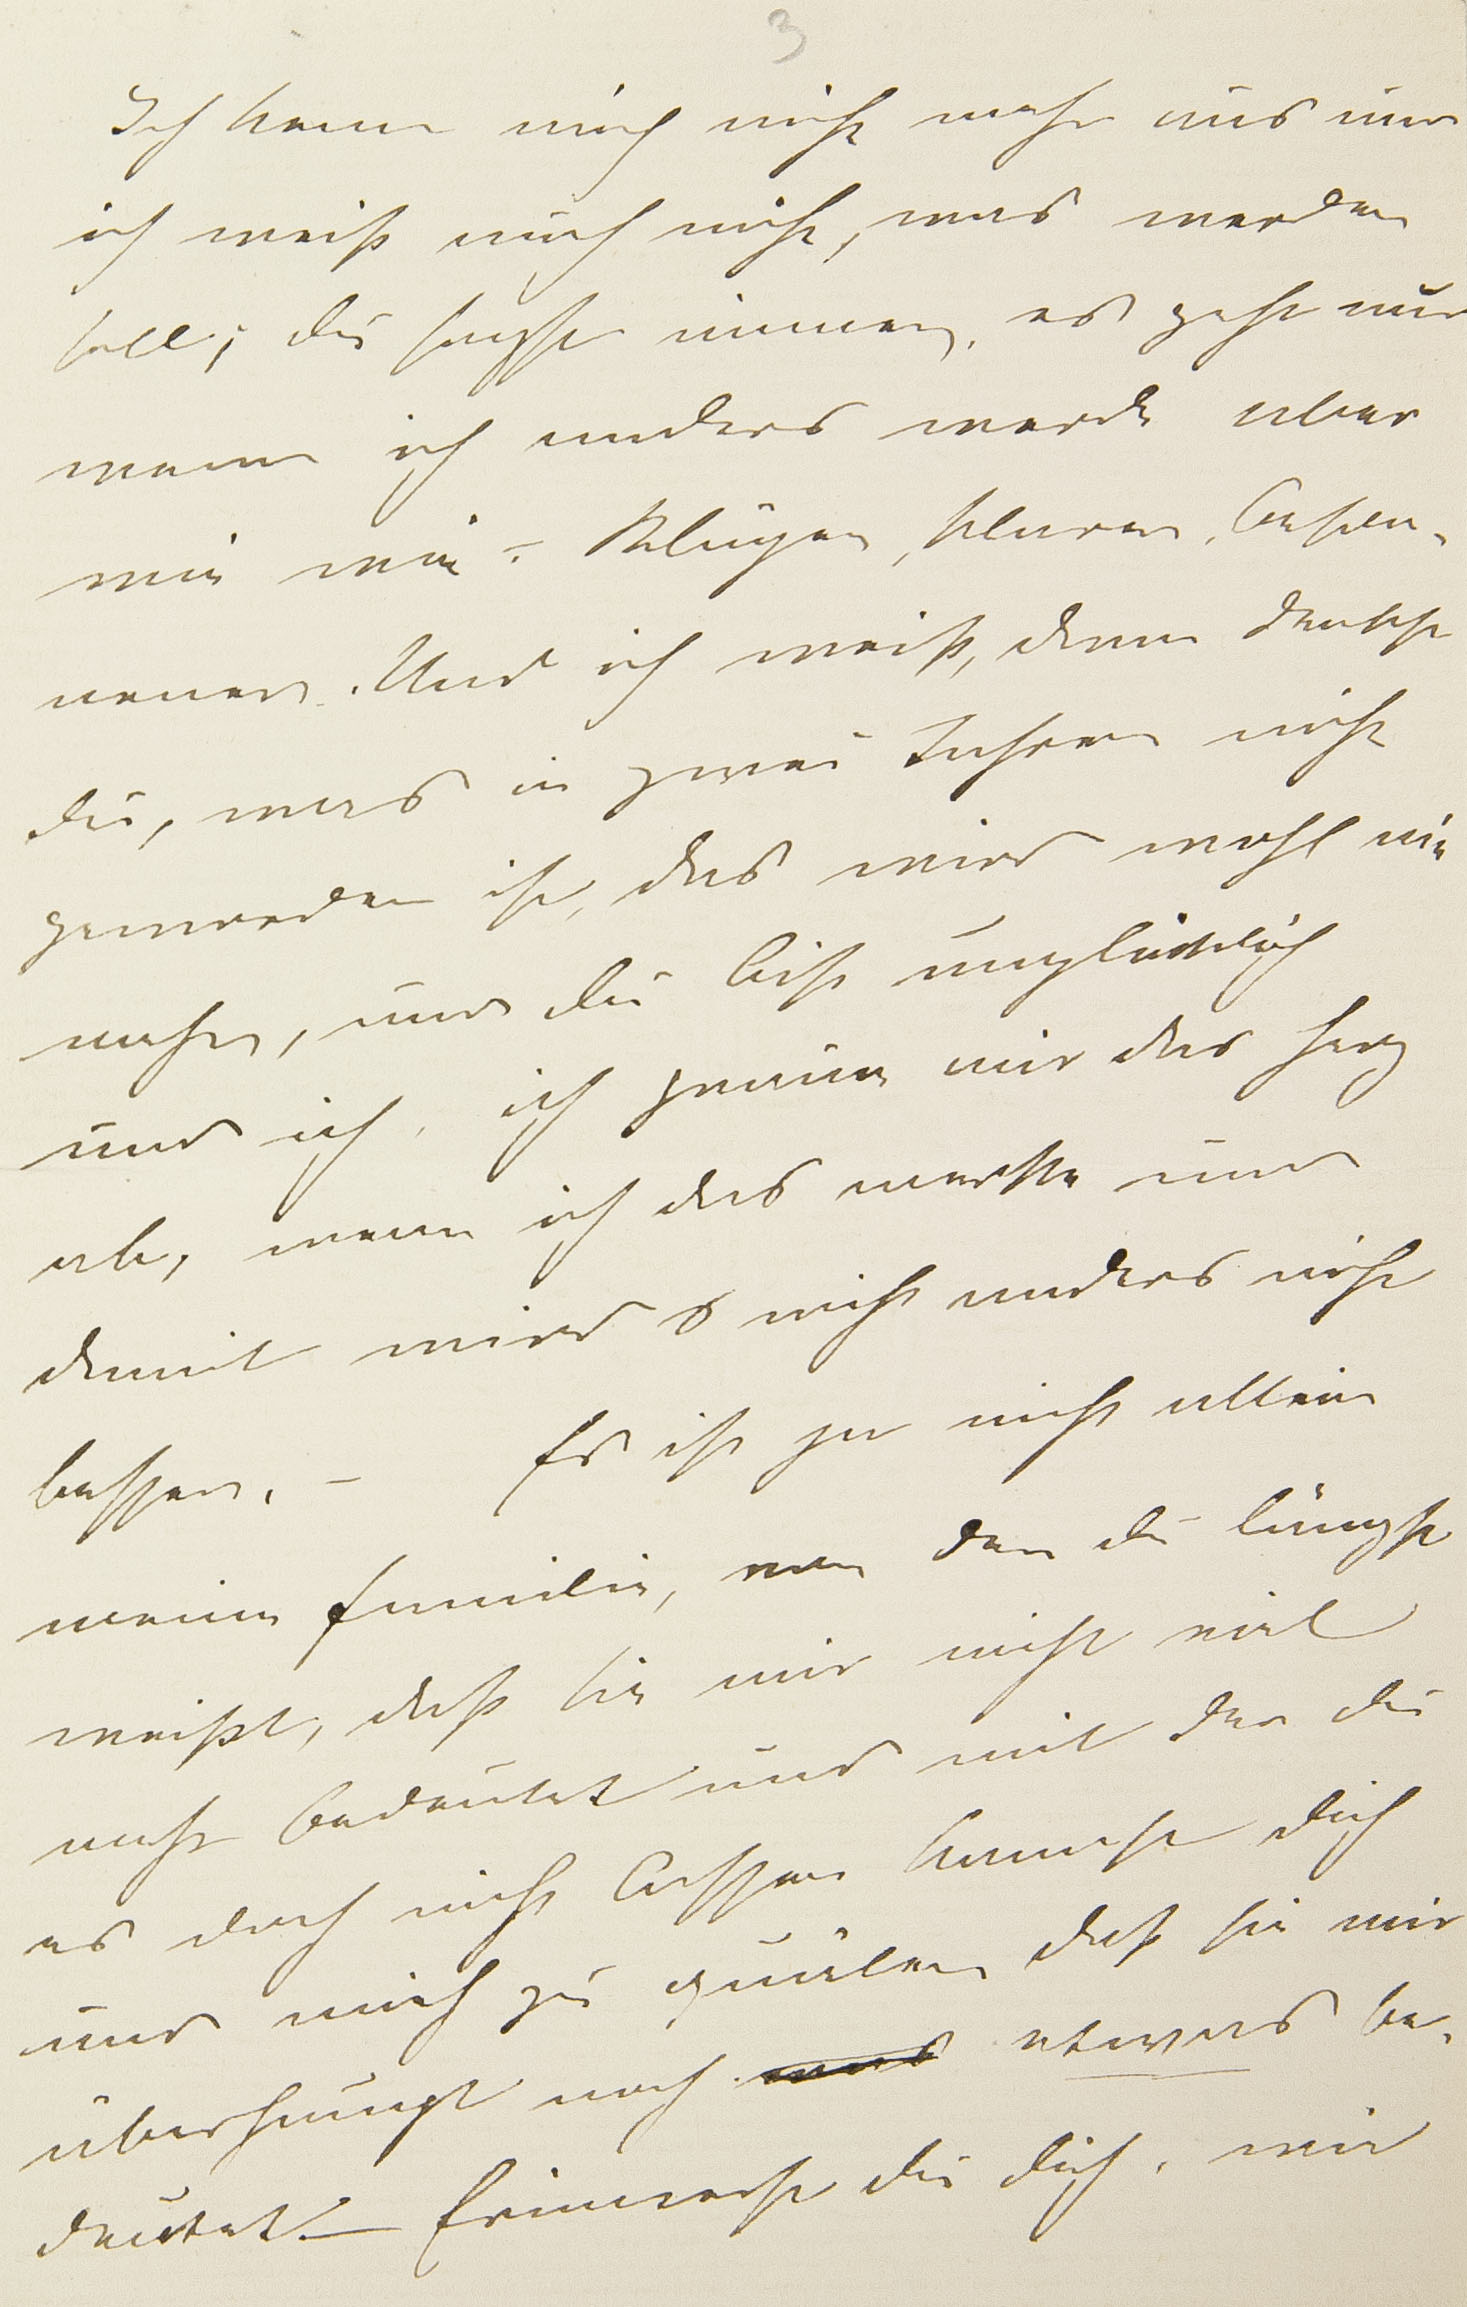 3
Ich kenne mich nicht mehr aus und
ich weiß auch nicht, was werden
soll; du sagst immer, es geht nur
wenn ich anders werde aber
wie wie – Klüger, klarer, beson-
nener. Und ich weiß, dann denkst
du, was in zwei Jahren nicht
geworden ist, das wird wohl nie
mehr, und du bist unglücklich
und ich, ich gräme mir das Herz
ab, wenn ich das merke und
damit wird es nicht anders nicht
besser. – Es ist ja nicht allein
meine Familie, von der du längst
weißt, daß sie mir nicht viel
mehr bedeutet und mit der du
es doch nicht lassen kannst dich
und mich zu quälen daß sie mir
überhaupt noch was etwas be-
deutet. – Erinnerst du dich, wie